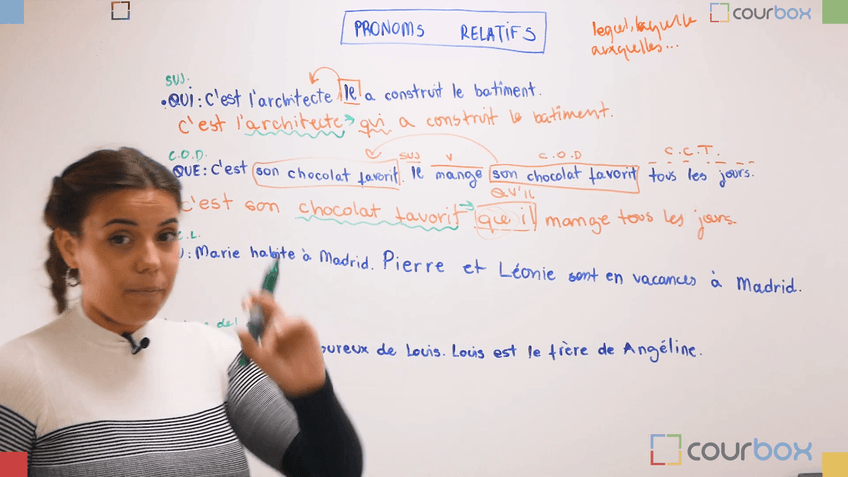 PRONOMS RELATIFS
lequel, laquelle
auxquelles...
courbox
SUJ.
•QUI: C'est l'architecte le a construit le batîment.
C'est l'architecte → qui a construit le batîment.
C.O.D. SUJ V C.O.D C.C.T.
QUE: C'est son chocolat favorit. le mange son chocolat favorit tous les jours.
QU'IL
c'est son chocolat favorit → que il mange tous les jours.
C.L.
: Marie habite à Madrid. Pierre et Léonie sont en vacances à Madrid.
de Louis. Louis est le frère de Angéline.
courbox